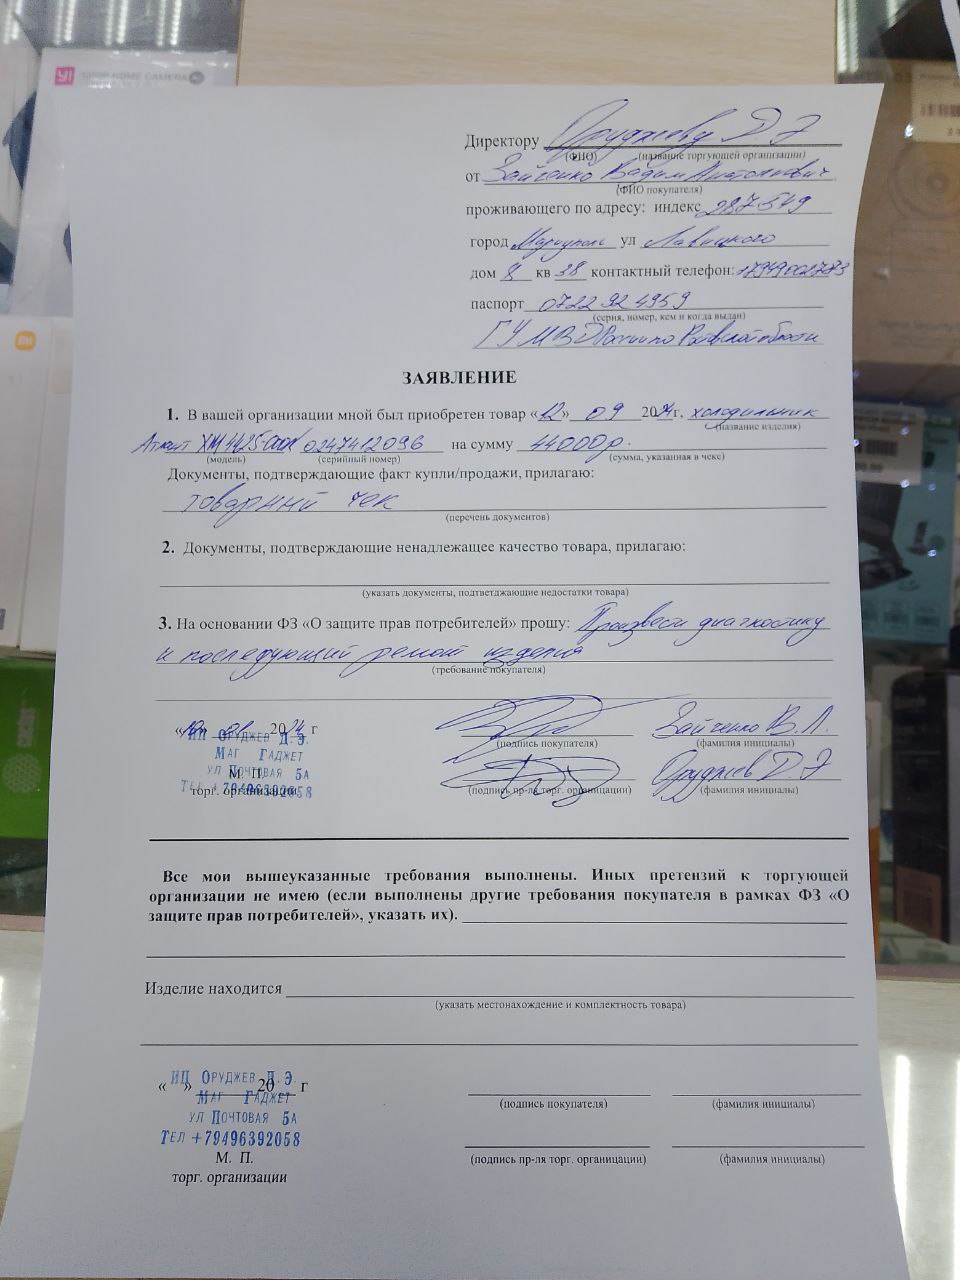 HOME CAMERA
Директору Оруджеву Д Э
(ФИО) (название торгующей организации)
от Зайченко Вадим Анатолиевич
(ФИО покупателя)
проживающего по адресу: индекс 287549
город Мариуполь ул Лавицкого
дом 8 кв 38 контактный телефон: +79494002783
паспорт 0722 924959
(серия, номер, кем и когда выдан)
ГУ МВД России по Ростовской области
ЗАЯВЛЕНИЕ
1. В вашей организации мной был приобретен товар «12» 09 2024г, холодильник
(название изделия)
Атлант ХМ4425 0247412096 на сумму 44000р.
(модель) (серийный номер) (сумма, указанная в чеке)
Документы, подтверждающие факт купли/продажи, прилагаю:
товарный чек
(перечень документов)
2. Документы, подтверждающие ненадлежащее качество товара, прилагаю:
(указать документы, подтветджающие недостатки товара)
3. На основании ФЗ «О защите прав потребителей» прошу: Произвести диагностику
и последующий ремонт изделия
(требование покупателя)
« » 2024 г Зайченко В.А.
(подпись покупателя) (фамилия инициалы)
ИП Оруджев Д.Э.
Маг Гаджет
ул Почтовая 5А
Тел +79496392058
М. П. Оруджев Д.Э
торг. организации (подпись пр-ля торг. органицации) (фамилия инициалы)
Все мои вышеуказанные требования выполнены. Иных претензий к торгующей
организации не имею (если выполнены другие требования покупателя в рамках ФЗ «О
защите прав потребителей», указать их).
Изделие находится
(указать местонахождение и комплектность товара)
« » 20 г
ИП Оруджев Д.Э.
Маг Гаджет
ул Почтовая 5А
Тел +79496392058
(подпись покупателя) (фамилия инициалы)
М. П.
торг. организации
(подпись пр-ля торг. органицации) (фамилия инициалы)